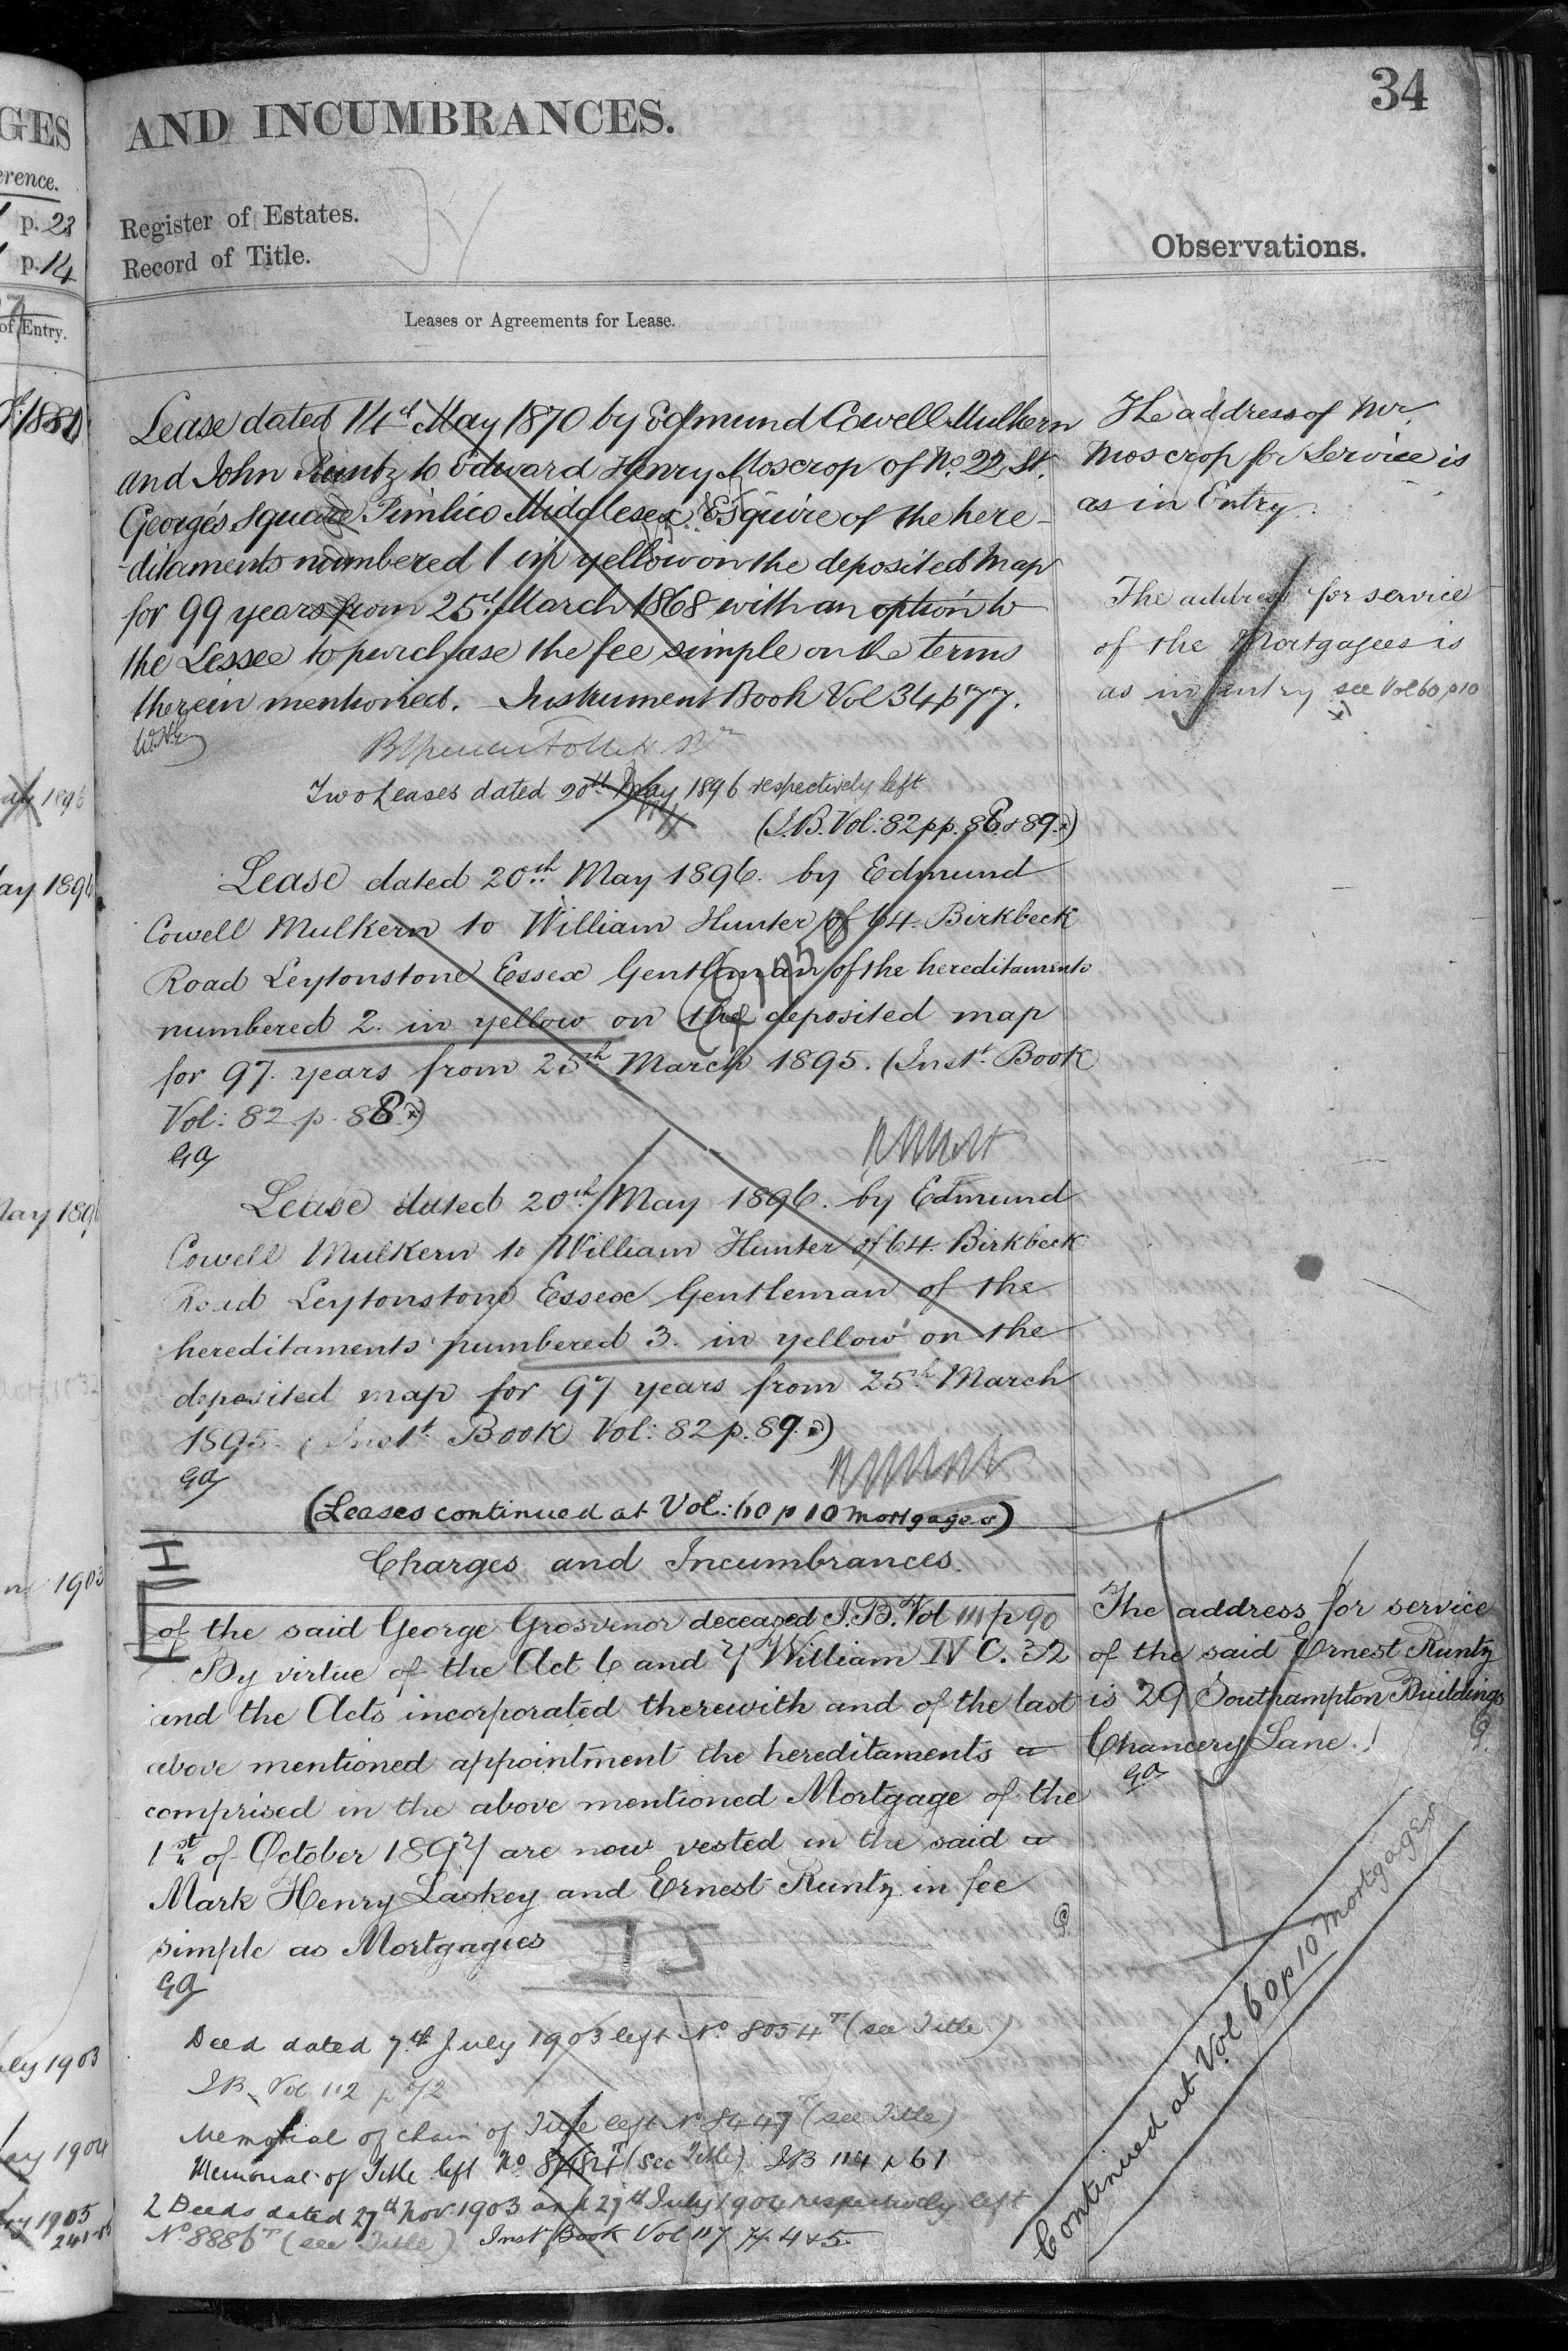 GES
erence.
p. 23
p. 14
of Entry.
1881
ay 1896
ay 1896
May 1896
1903
uly 1903
ay 1904
1905
34
AND INCUMBRANCES.
Register of Estates.
Record of Title.
Observations.
Leases or Agreements for Lease.
Lease dated 14th May 1870 by Edmund Cowell Mulkern
and John Runtz to Edward Henry Moscrop of No. 22 St.
George's Square Pimlico Middlesex Esquire of the here-
-ditaments numbered 1 in yellow on the deposited Map
for 99 years from 25th March 1868 with an option to
the Lessee to purchase the fee simple on the terms
therein mentioned. Instrument Book Vol 34 p 77.
Two Leases dated 20th May 1896 respectively left
(I.B. Vol: 82 pp. 88 & 89.)
Lease dated 20th May 1896. by Edmund
Cowell Mulkern to William Hunter of 64. Birkbeck
Road Leytonstone Essex Gentleman of the hereditaments
numbered 2. in yellow on the deposited map
for 97. years from 25th March 1895. (Inst. Book
Vol: 82 p. 88.)
GA
Lease dated 20th May 1896. by Edmund
Cowell Mulkern to William Hunter of 64. Birkbeck
Road Leytonstone Essex Gentleman of the
hereditaments numbered 3. in yellow on the
deposited map for 97 years from 25th March
1895. (Inst. Book Vol: 82 p. 89.)
GA
(Leases continued at Vol: 60 p 10 Mortgages)
Charges and Incumbrances.
H
of the said George Grosvenor deceased I.B. Vol 111 p 90
By virtue of the Act 6 and 7 William IV C. 32
and the Acts incorporated therewith and of the last
above mentioned appointment the hereditaments
comprised in the above mentioned Mortgage of the
1st of October 1897 are now vested in the said
Mark Henry Laskey and Ernest Runtz in fee
simple as Mortgagees
GA
Deed dated 7th July 1903 left No. 8054 T (see Title)
I.B. Vol 112 p 72
Memorial of chain of Title left No. 8447 T (see Title)
Memorial of Title left No (see Title) I.B 114 p 61
2 Deeds dated 27th Nov. 1903 and 27th July 1904 respectively left
No. 8886 T (see Title) Inst. Book Vol 117 pp. 4 & 5
The address of Mr.
Moscrop for Service is
as in Entry.
The address for service
of the Mortgagees is
as in Entry see Vol 60 p 10
The address for service
of the said Ernest Runtz
is 29 Southampton Buildings
Chancery Lane.
GA
Continued at Vol 60 p 10 Mortgages